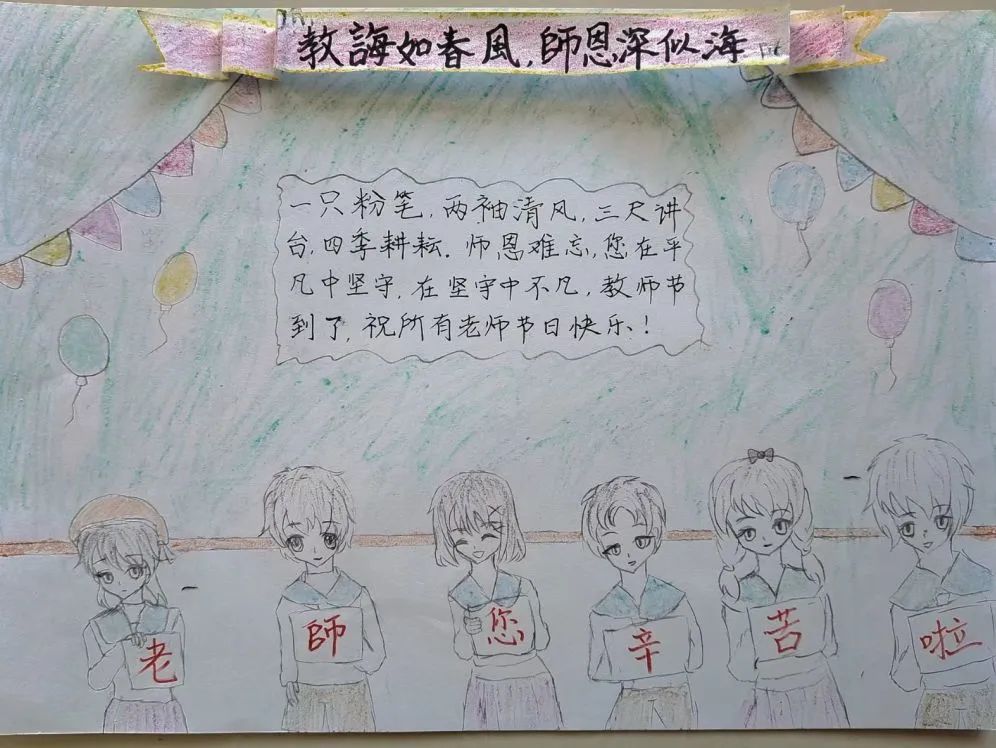 教誨如春風,師恩深似海
一只粉笔,两袖清风,三尺讲
台,四季耕耘.师恩难忘,您在平
凡中坚守,在坚守中不凡,教师节
到了,祝所有老师节日快乐!
老 師 您 辛 苦 啦